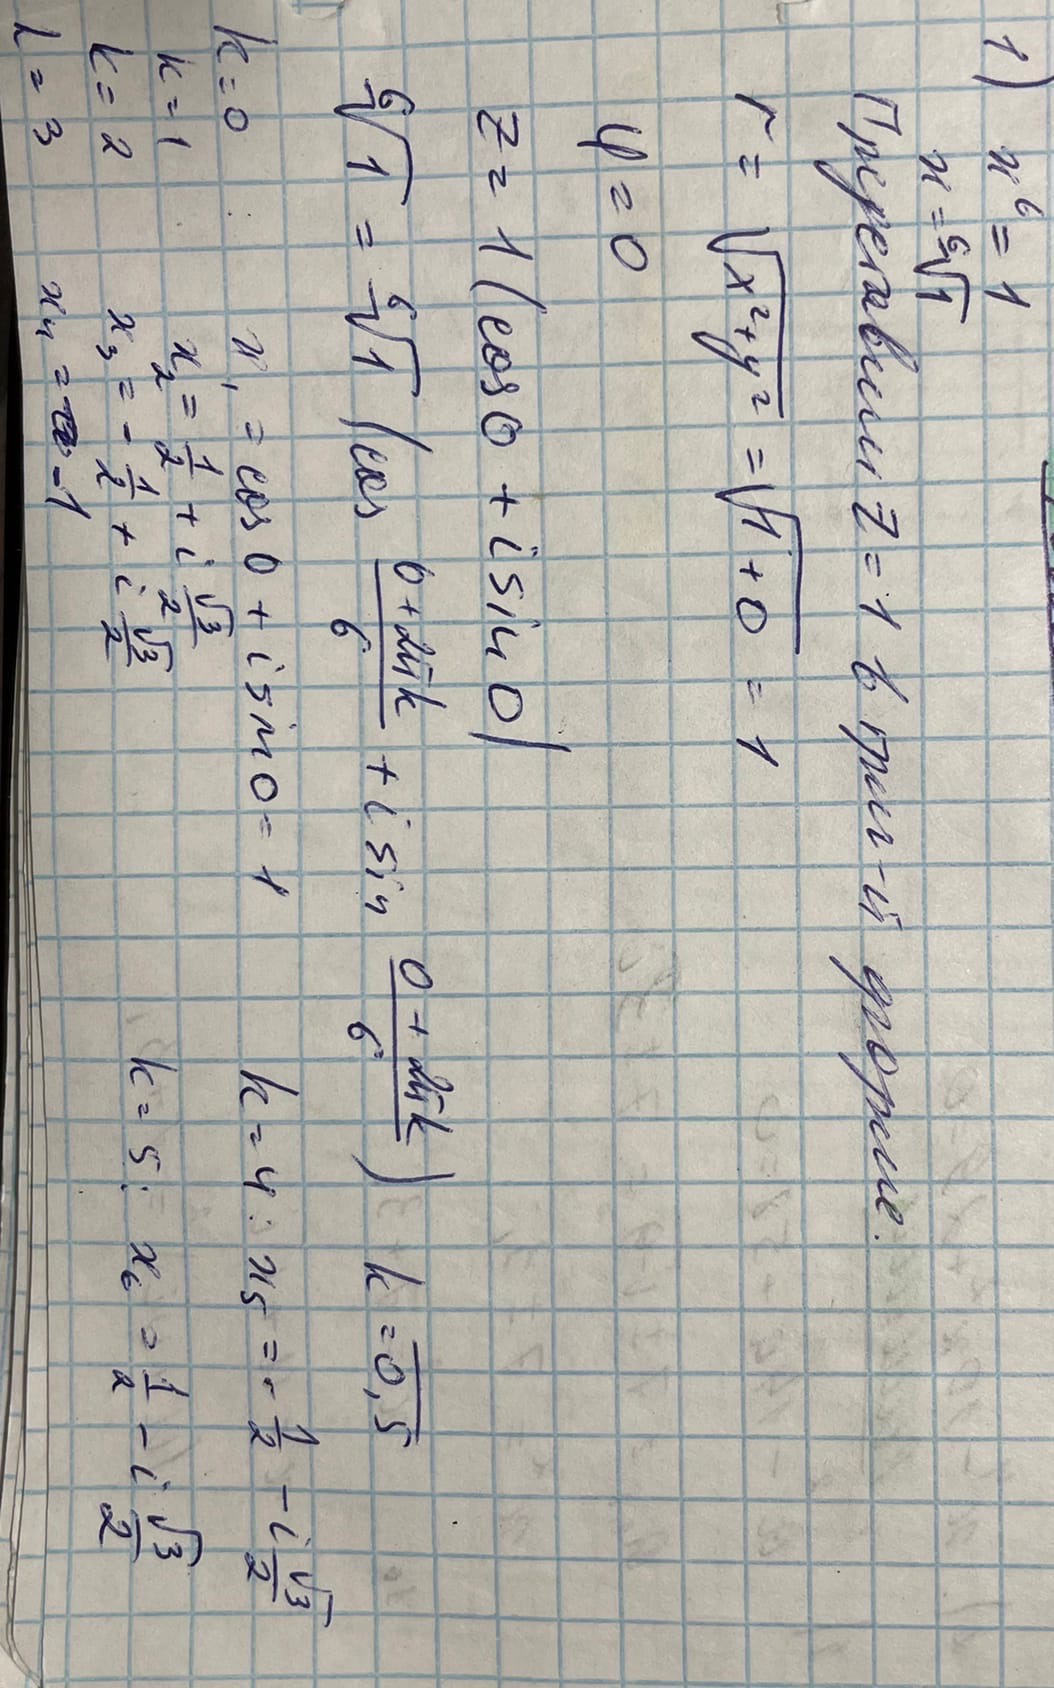 1) x⁶ = 1
x = ⁶√1
Представим z = 1 в триг-й форме.
r = √(x² + y²) = √(1 + 0) = 1
φ = 0
z = 1 (cos 0 + i sin 0)
⁶√1 = ⁶√1 (cos (0 + 2πk)/6 + i sin (0 + 2πk)/6) k = 0,5
k = 0 : x₁ = cos 0 + i sin 0 = 1
k = 1 x₂ = 1/2 + i √3/2
k = 2 x₃ = - 1/2 + i √3/2
k = 3 x₄ = -1
k = 4 : x₅ = - 1/2 - i √3/2
k = 5 : x₆ = 1/2 - i √3/2